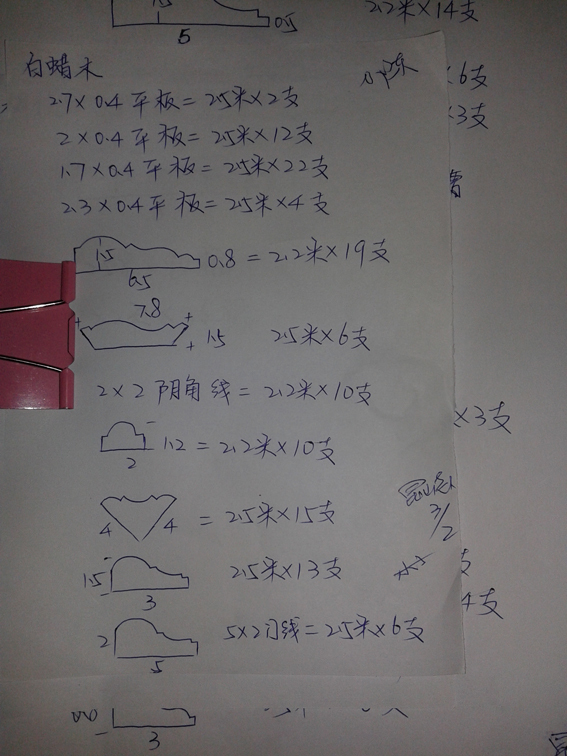 2.2米×14支
0.5
5
白蜡木
小陈
×6支
2.7×0.4平板=2.5米×2支
×3支
2×0.4平板=2.5米×12支
1.7×0.4平板=2.5米×22支
2.3×0.4平板=2.5米×4支
1.5
6.5
0.8=2.2米×19支
7.8
1.5 2.5米×6支
2×2阴角线=2.2米×10支
×3支
1.2=2.2米×10支
2
4 4 =2.5米×15支
3/2
1.5 2.5米×13支
3
支
4支
2 5×2门线=2.5米×6支
5
3